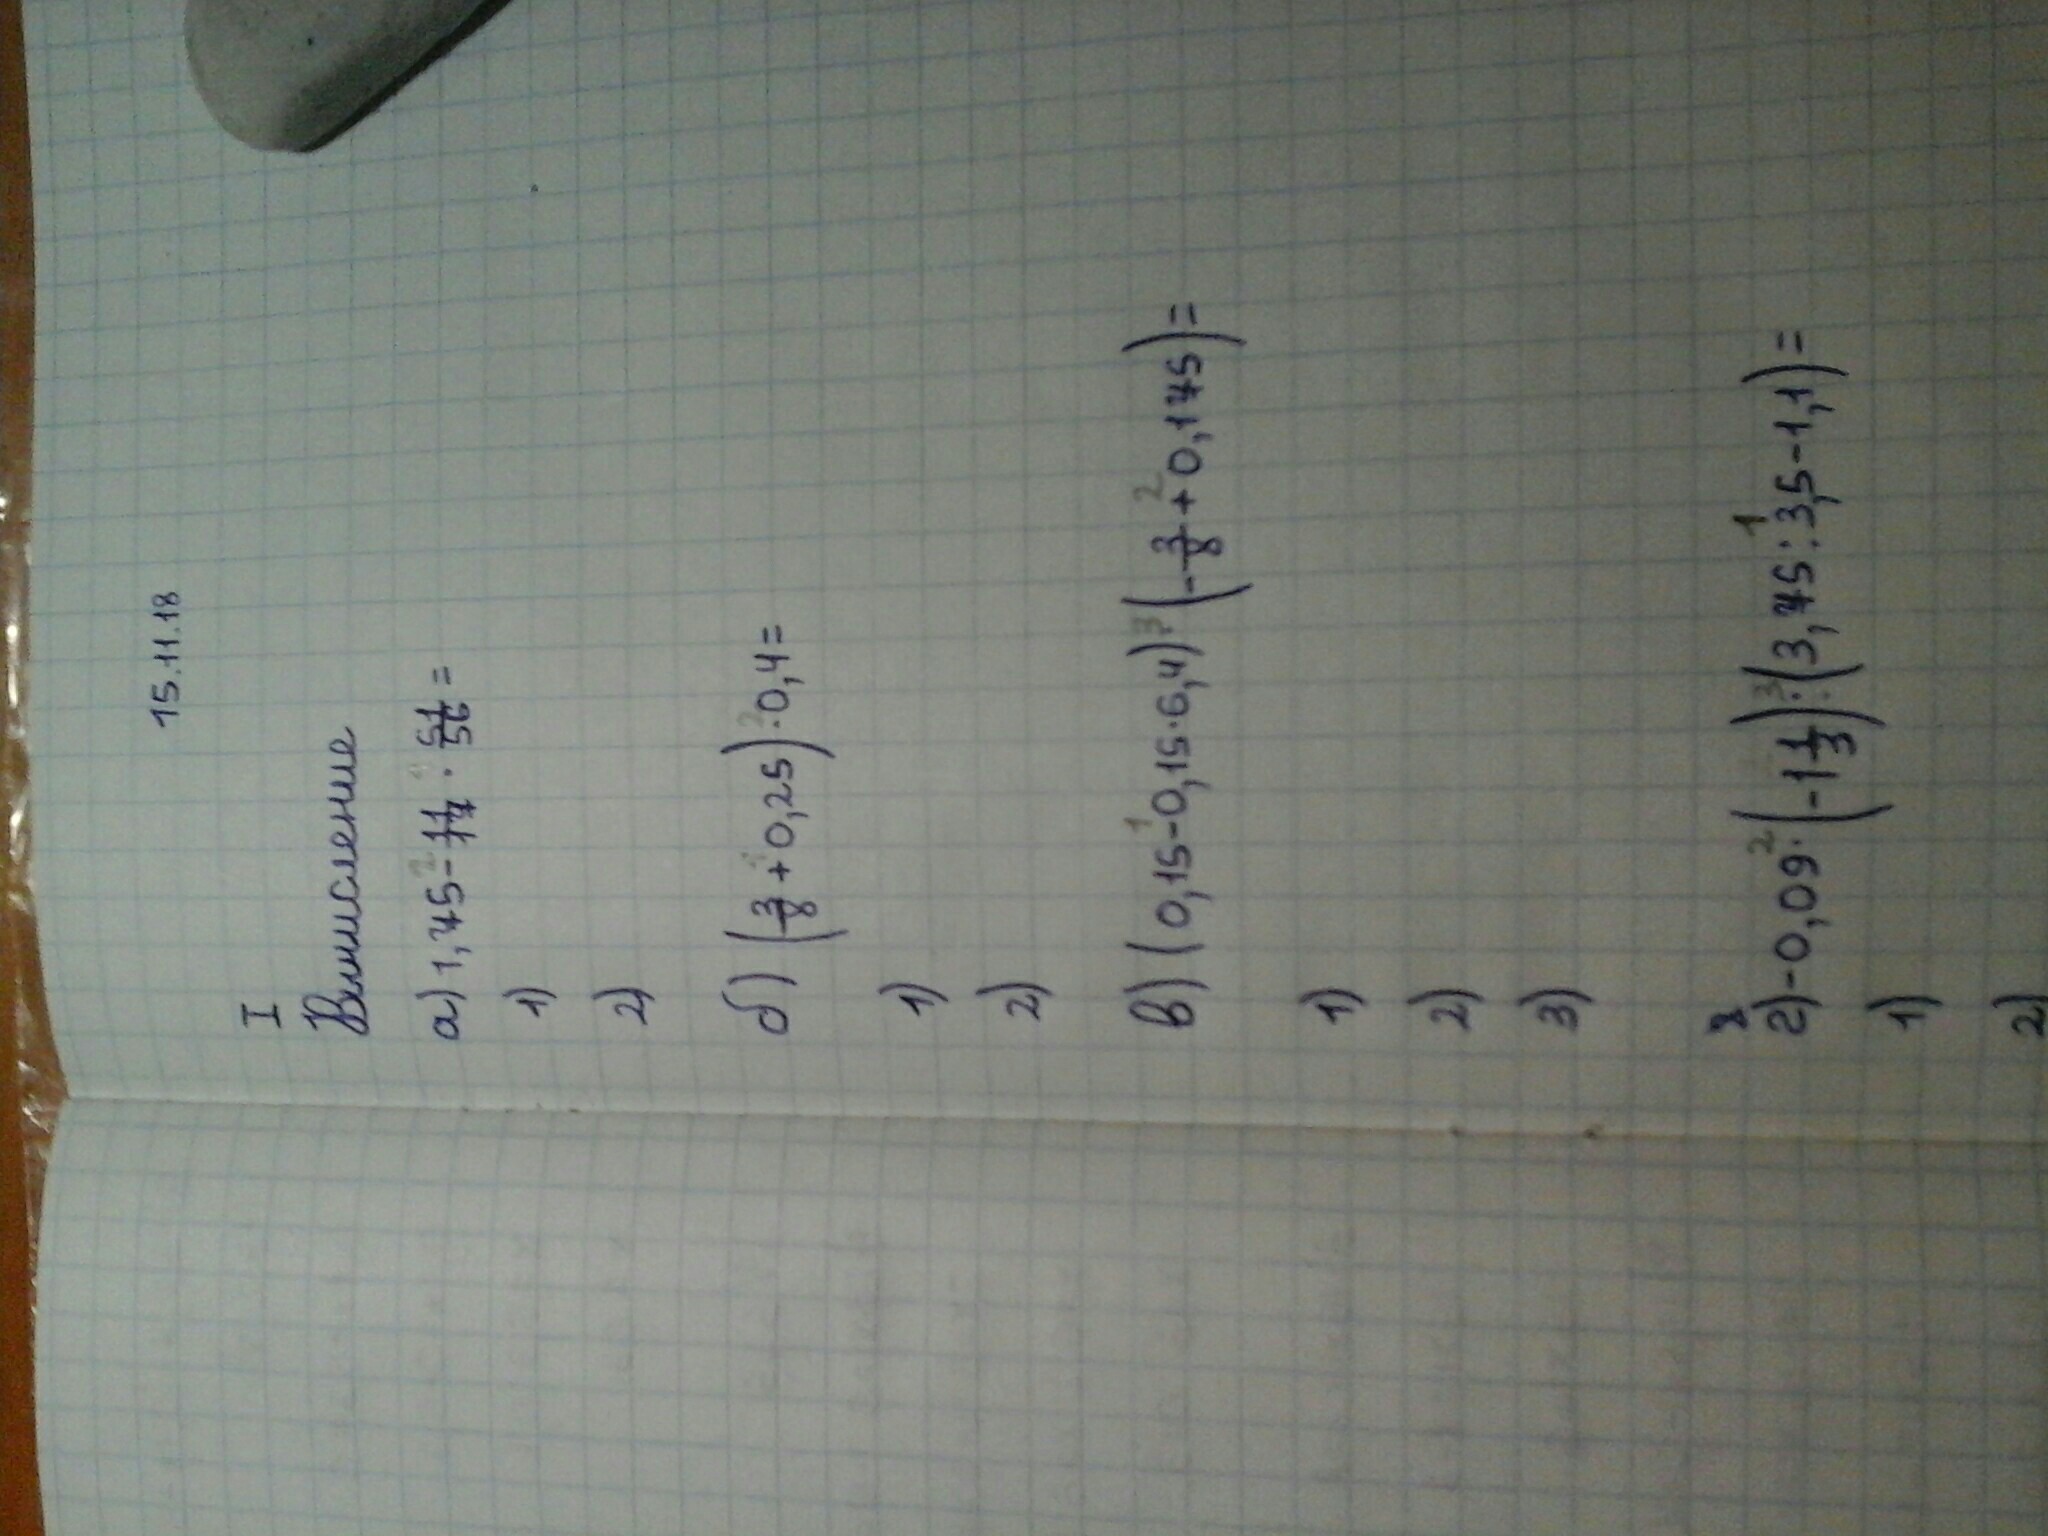 15.11.18
I
Вычисление
а) 1,75 - 11/17 · 51/56 =
1)
2)
б) (3/8 + 0,25) · 0,4 =
1)
2)
в) (0,15 - 0,15 · 6,4) : (-3/8 + 0,175) =
1)
2)
3)
г) -0,09 · (-1 1/3) : (3,75 : 3,5 - 1,1) =
1)
2)